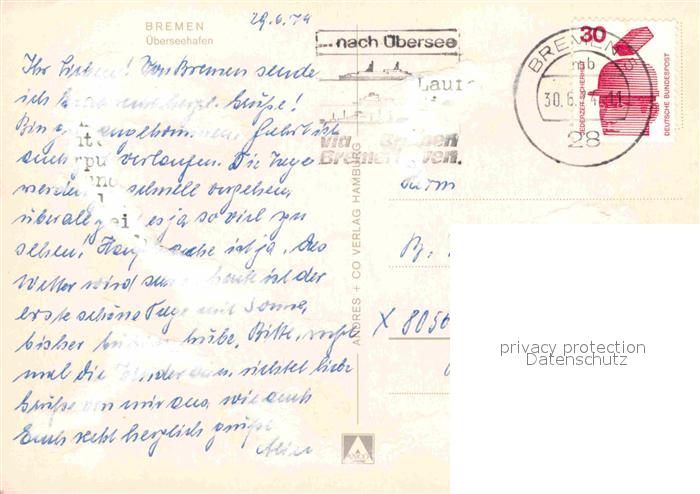 29.6.74
BREMEN
Überseehafen
...nach Übersee
via Bremen
Bremerhaven.
BREMEN
mb
30.6.74-11
28
30
JEDERZEIT SICHERHEIT
DEUTSCHE BUNDESPOST
Ihr Lieben! Von Bremen sende
ich Grüße!
Bin gut angekommen, Fahrt ist
auch gut verlaufen. Die Tage
werden schnell vergehen,
überall gibt es ja so viel zu
sehen! Hauptsache ist ja, das
Wetter wird heute ist der
erste schöne Tag mit Sonne,
bisher trübe. Bitte,
mal die Kinder richtet liebe
Grüße von mir aus, wie auch
Euch recht herzlich grüßt
ANDRES + CO VERLAG HAMBURG
Lauf
X 8050
ANCO
privacy protection
Datenschutz